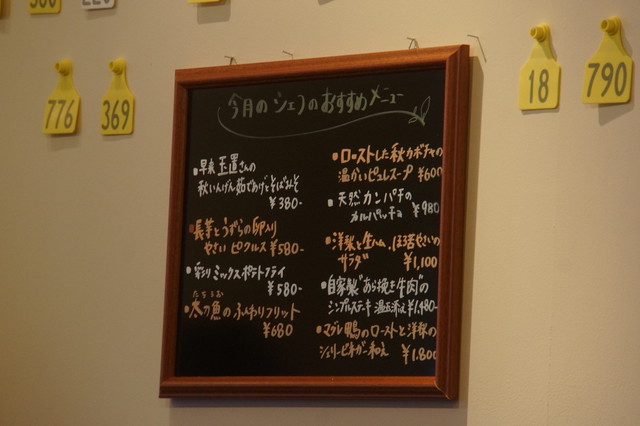 776
369
18
790
今月のシェフのおすすめメニュー
・早来 玉置さんの
秋いんげん茹であげと
¥380-
・長芋とうずらの卵入り
やさい ピクルス ¥580-
・彩り ミックスポテトフライ
¥580-
の魚の ふんわりフリット
¥680
・ローストした秋カボチャの
温かいピュレスープ ¥600
・天然カンパチの
カルパッチョ ¥980
・洋梨と生ハム、ほろ苦やさいの
サラダ ¥1,100
・自家製"あら挽き牛肉"の
シンプルステーキ 温玉添え ¥1,480-
・マグレ鴨のローストと洋梨の
シェリービネガー和え ¥1.800